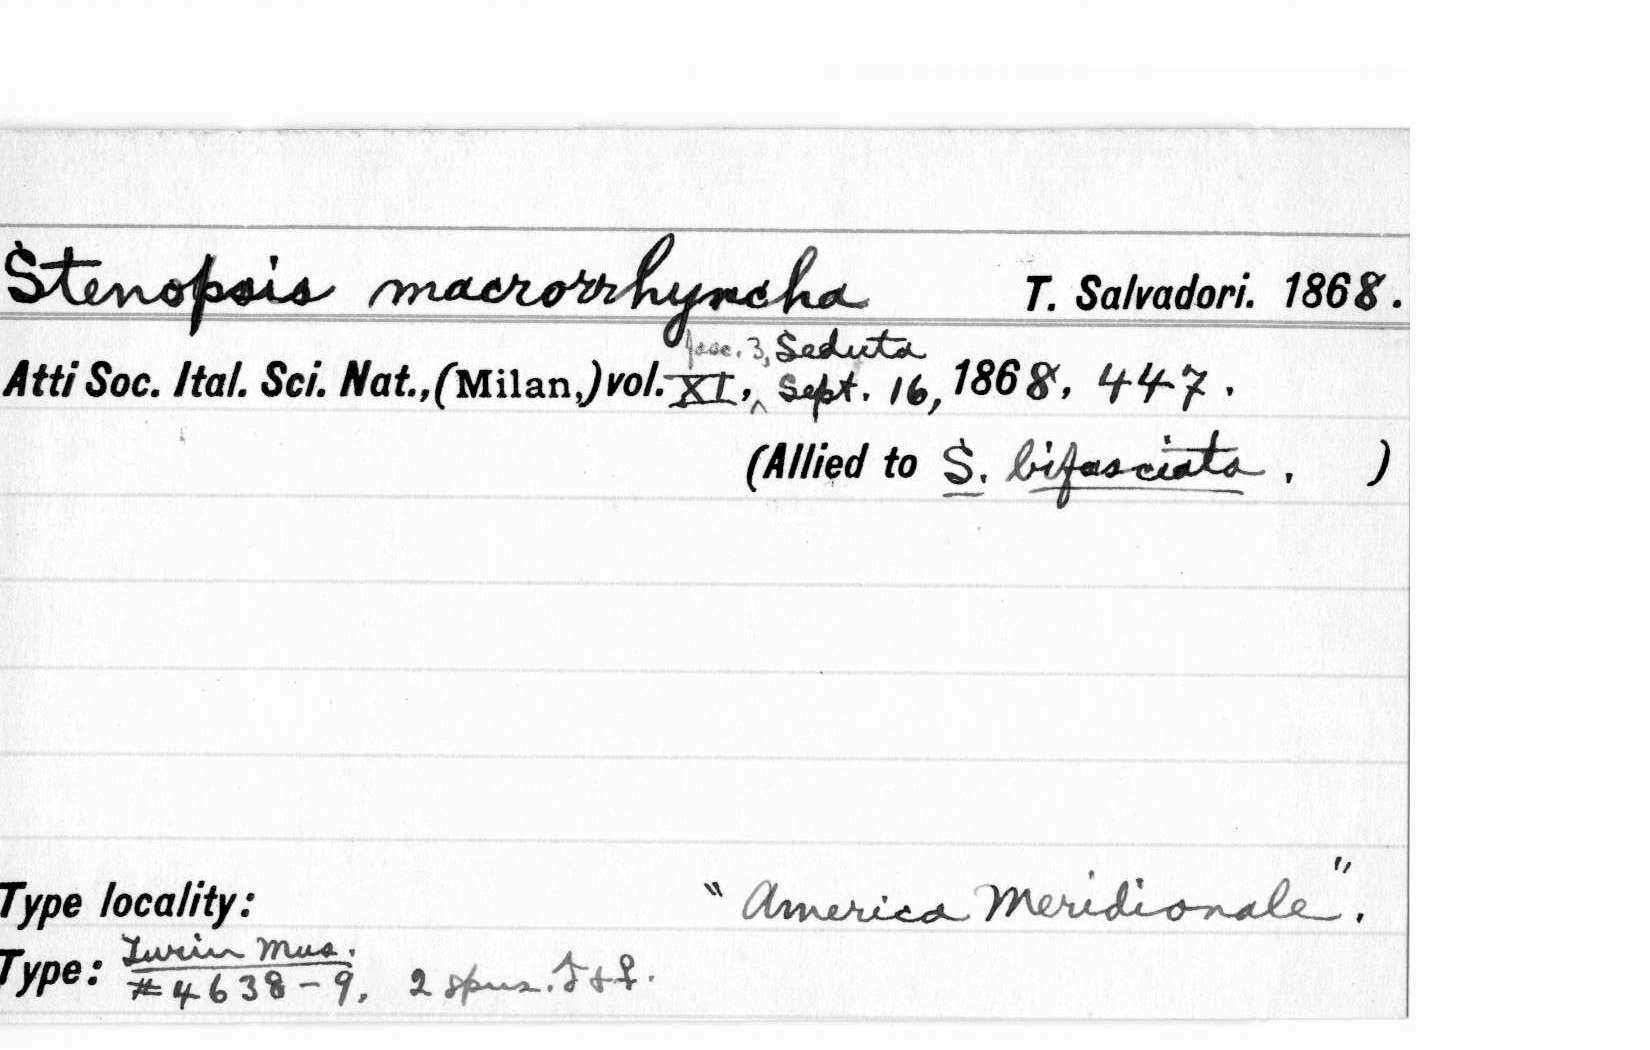 Stenopsis macrorrhyncha T. Salvadori. 1868.
fasc. 3, Seduta
Atti Soc. Ital. Sci. Nat., (Milan,) vol. XI, ^ Sept. 16, 1868, 447.
(Allied to S. bifasciata. )
Type locality: "America Meridionale".
Turin Mus.
Type: #4638-9. 2 spns. ♂ & ♀.